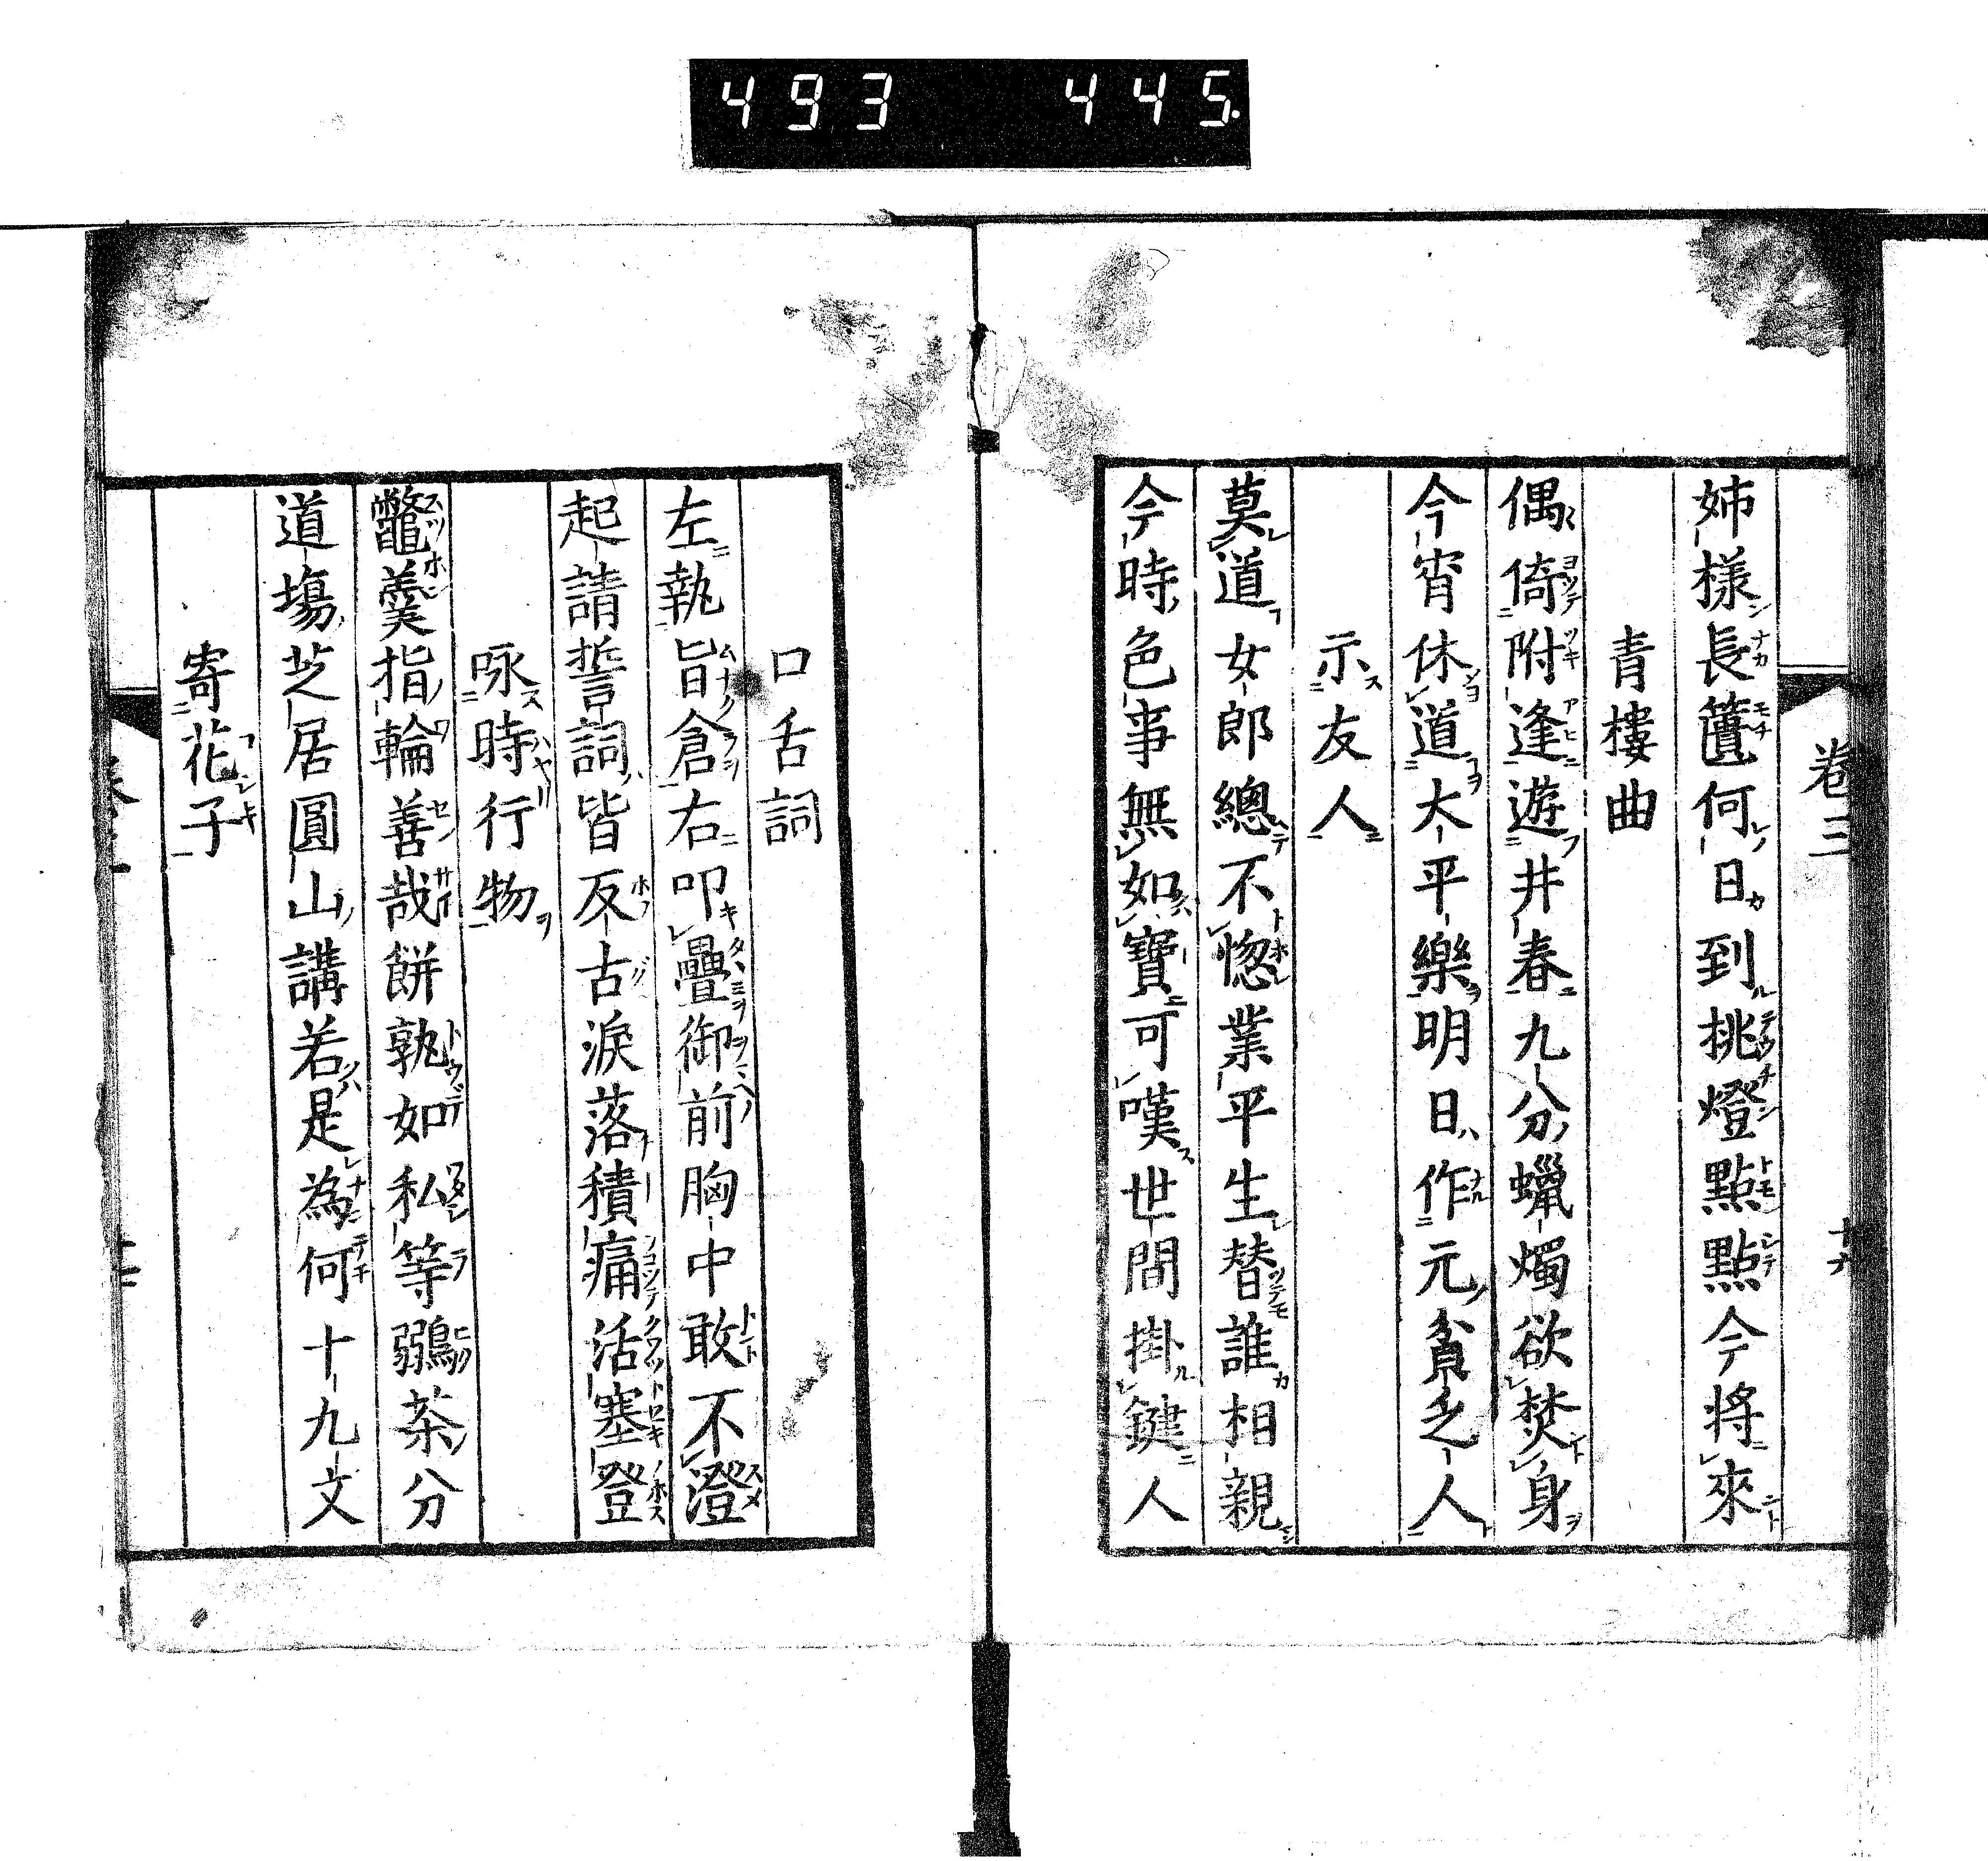 493 445.
卷三
十六
姉様長篋何日到挑燈點點今將來
青樓曲
偶倚附逢遊井春九分蠟燭欲焚身
今宵休道大平樂明日作元貧乏人
示友人
莫道女郎總不惚業平生替誰相親
今時色事無如寶可嘆世間掛鍵人
口舌詞
左執旨倉右叩疊御前胸中敢不澄
起請誓詞皆反古淚落積痛活塞登
咏時行物
鼈羹指輪善哉餅孰如私等鶸茶分
道塲芝居圓山講若是為何十九文
寄花子